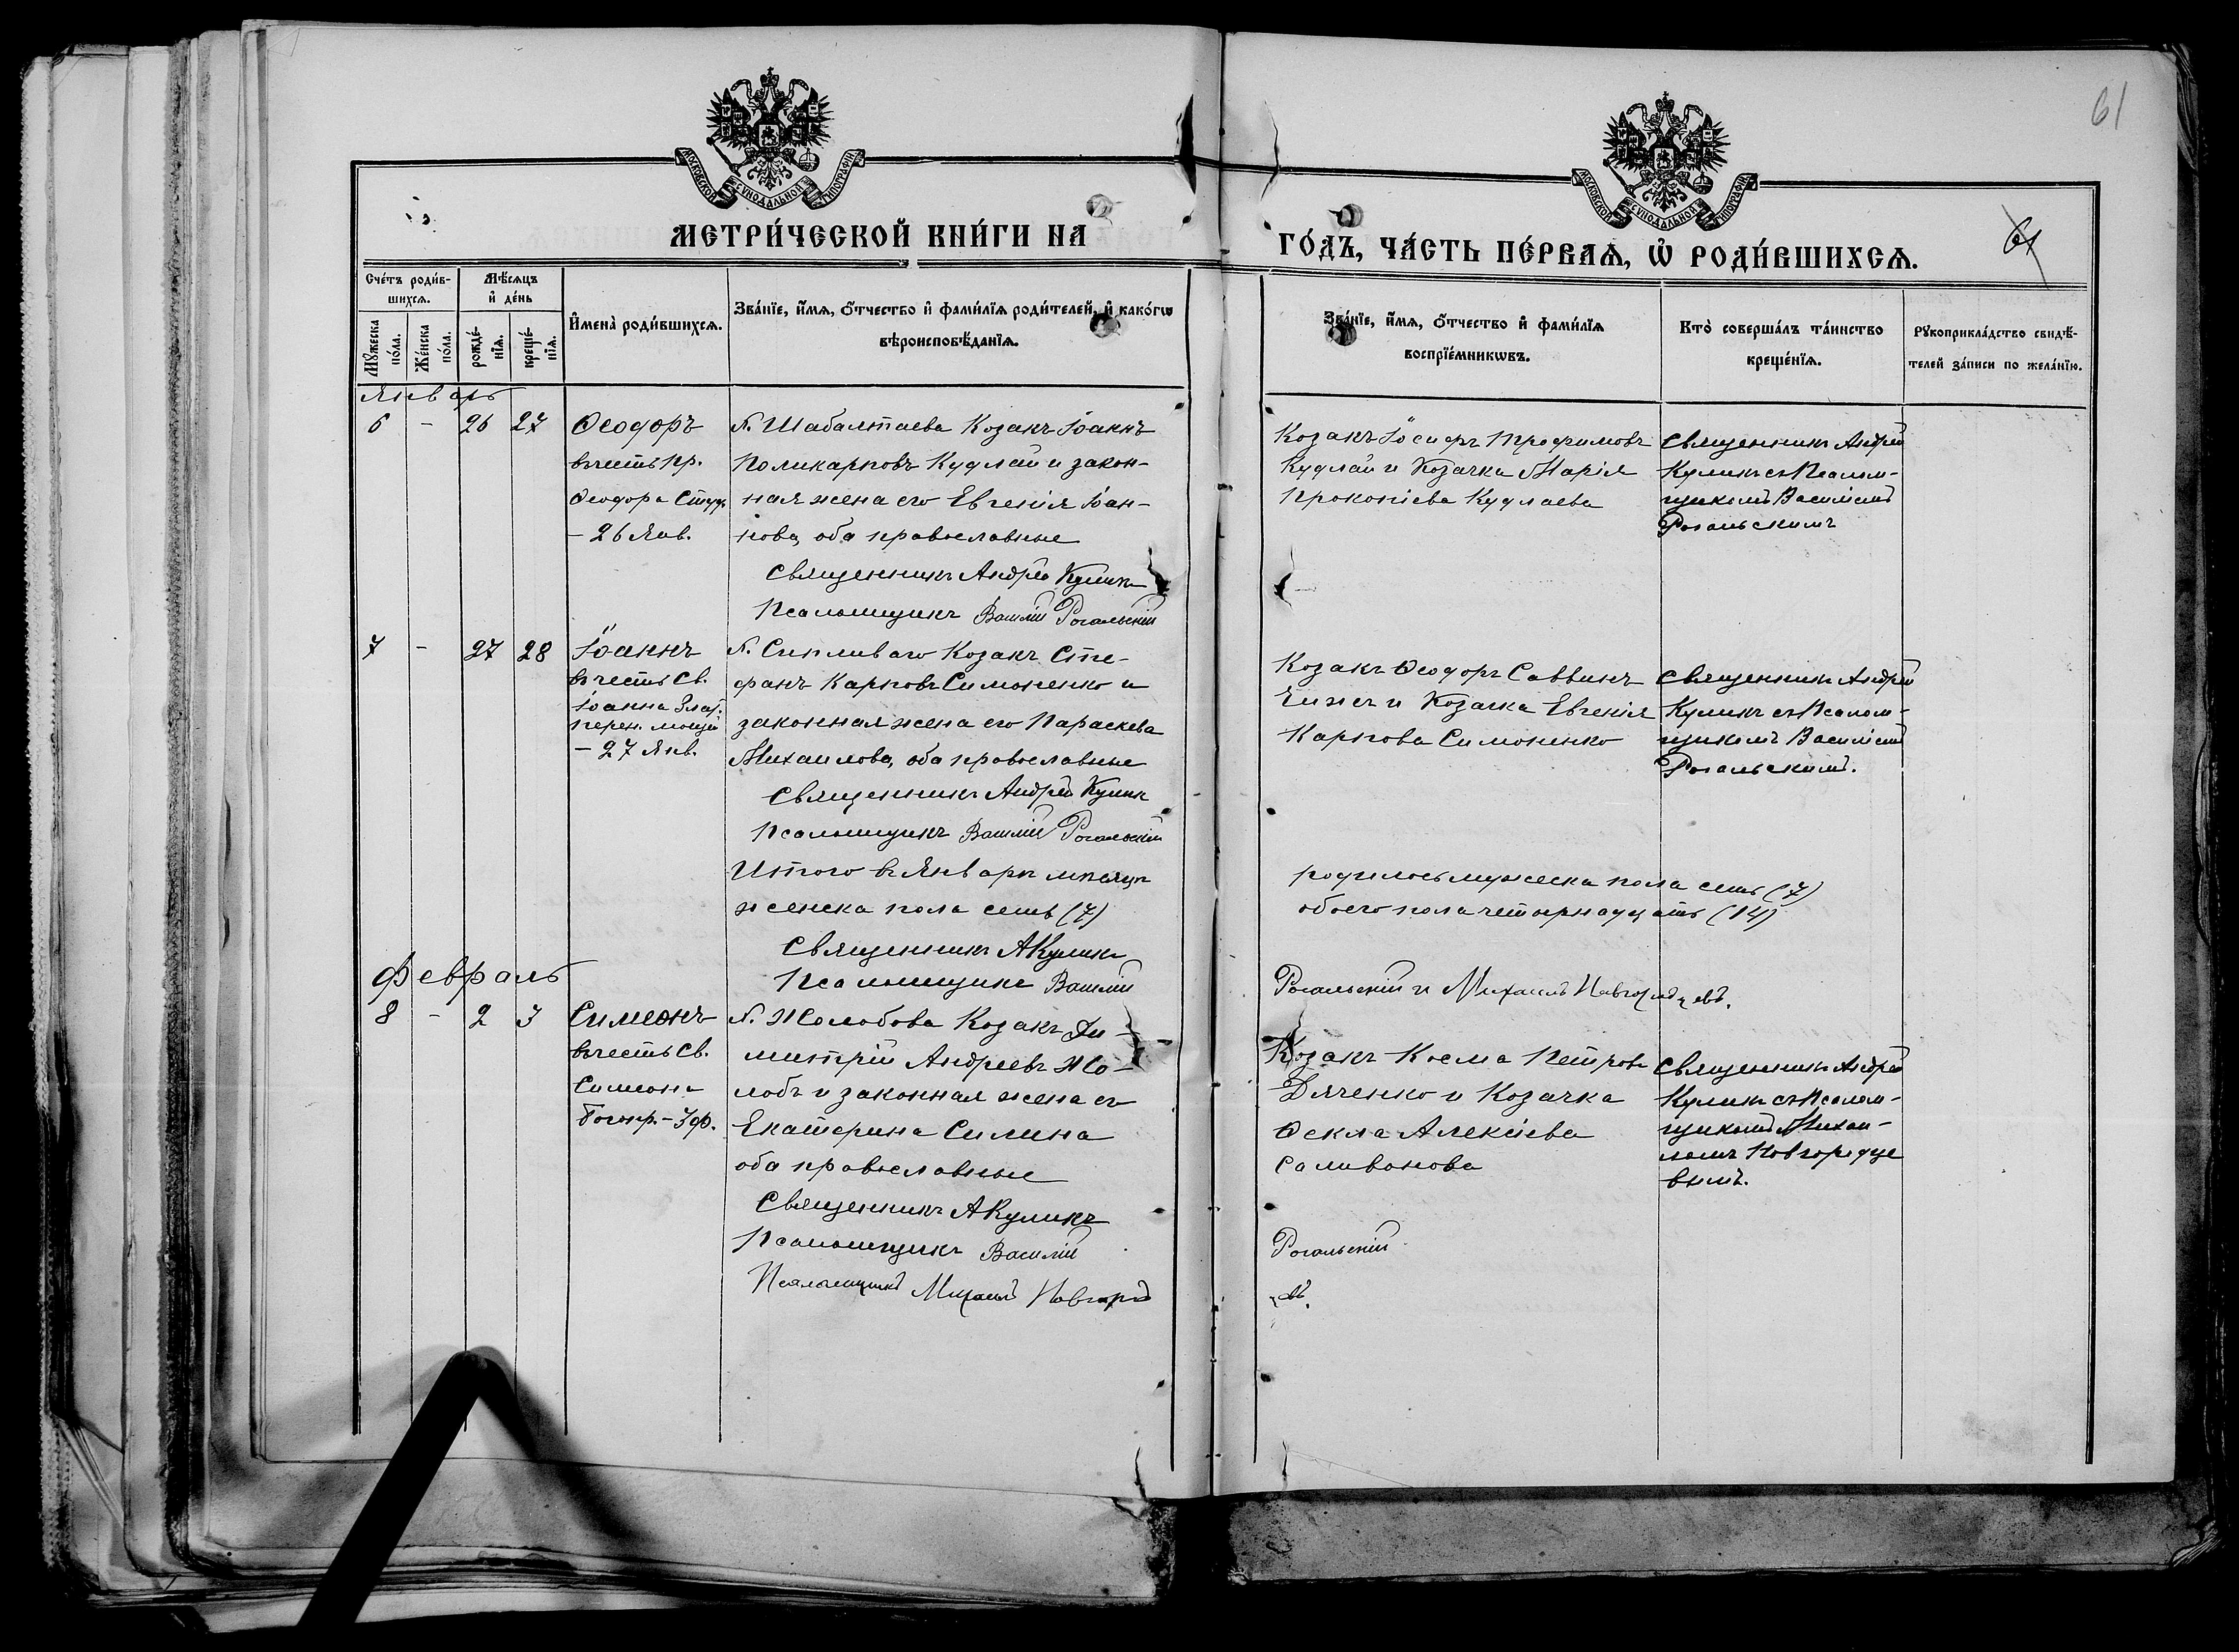 61
МОСКОВСКОЙ СѴНОДАЛЬНОЙ ТИПОГРАФІИ
МОСКОВСКОЙ СѴНОДАЛЬНОЙ ТИПОГРАФІИ
МЕТРИ́ЧЕСКОЙ КНИ́ГИ НА
ГО́ДЪ, ЧА́СТЬ ПЕ́РВАѦ, Ѡ҆ РОДИ́ВШИХСѦ.
61
Сче́тъ роди́в-
шихсѧ.
Мѣ́сѧцъ
и҆ де́нь
Мꙋ́жеска
по́ла.
Же́нска
по́ла.
рожде́-
нїѧ.
креще́-
нїѧ.
И҆мена̀ роди́вшихсѧ.
Зва́нїе, и҆́мѧ, ѻ҆́тчество и҆ фами́лїѧ роди́телей, и҆ како́гѡ
вѣроисповѣ́данїѧ.
Зва́нїе, и҆́мѧ, ѻ҆́тчество и҆ фами́лїѧ
воспрїе́мникѡвъ.
Кто̀ соверша́лъ та́инство
креще́нїѧ.
Рꙋкоприкла́дство свидѣ́-
телей за́писи по жела́нїю.
Январь
6 - 26 27
Ѳеодоръ
въ честь пр.
Ѳеодора Студ.
- 26 Янв.
х. Шабалтаева Козакъ Іоаннъ
Поликарповъ Кудлай и закон-
ная жена его Евгенія Іоан-
нова, оба православные
Священникъ Андрей Куликъ
Псаломщикъ Василій Рогальскій
Козакъ Іосифъ Трофимовъ
Кудлай и Козачка Марія
Прокопіева Кудлаева
Священникъ Андрей
Куликъ съ Псалом-
щикомъ Василіемъ
Рогальскимъ
7 - 27 28
Іоаннъ
въ честь Св.
Іоанна Злат.
перен. мощей
- 27 Янв.
х. Сипливаго Козакъ Сте-
фанъ Карповъ Симоненко и
законная жена его Параскева
Михаилова, оба православные
Священникъ Андрей Куликъ
Псаломщикъ Василій Рогальскій
Козакъ Ѳеодоръ Саввинъ
и Козачка Евгенія
Карпова Симоненко
Священникъ Андрей
Куликъ съ Псалом-
щикомъ Василіемъ
Рогальскимъ.
Итого въ Январѣ мѣсяцѣ
женска пола семь (7)
Священникъ АКуликъ
Псаломщикъ Василій
родилось мужеска пола семь (7)
обоего пола четырнадцать (14)
Рогальскій и Михаилъ Новгородцевъ.
Февраль
8 - 2 3
Симеонъ
въ честь Св.
Симеона
Богопр. - 3 ф.
х. Жолобова Козакъ Ди-
митрій Андреевъ Жо-
лобъ и законная жена его
Екатерина Силина
оба православные
Священникъ АКуликъ
Псаломщикъ Василій
Псаломщикъ Михаилъ Новгород
Козакъ Косма Петровъ
Дяченко и Козачка
Ѳекла Алексіева
Саливонова
Рогальскій
цевъ.
Священникъ Андрей
Куликъ съ Псалом-
щикомъ Михаи-
ломъ Новгородце
вымъ.